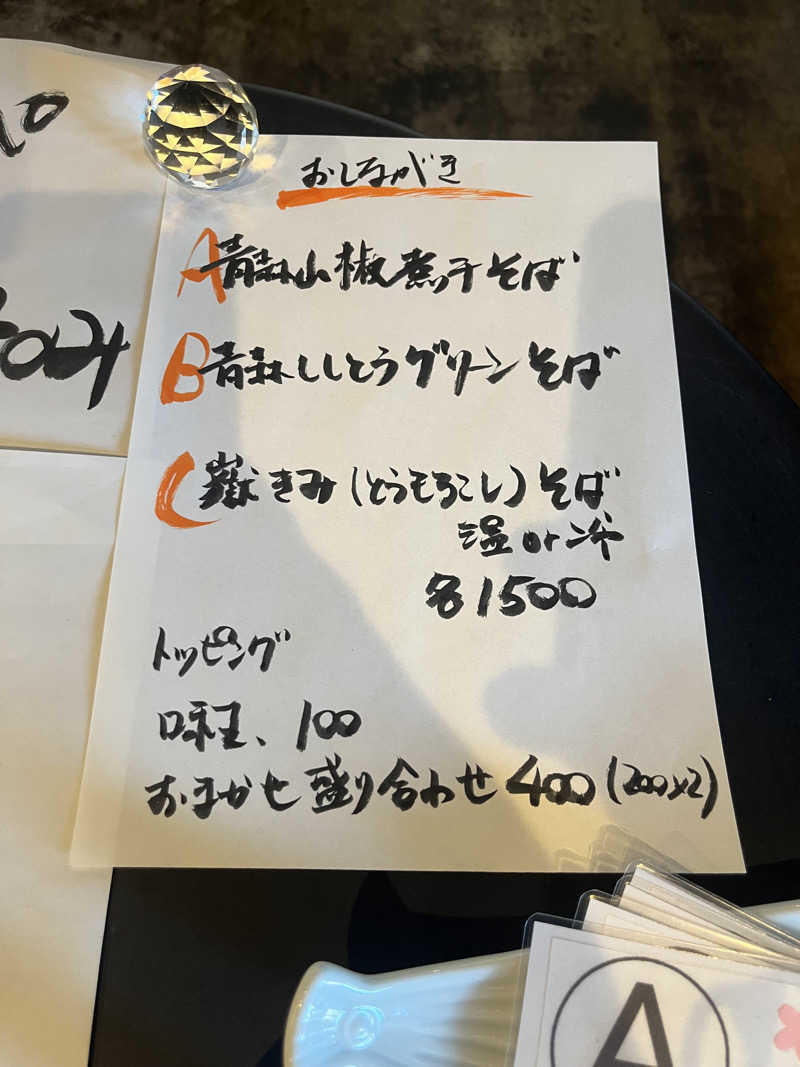 おしながき
A青森山椒煮干そば
B青森ししとうグリーンそば
C嶽きみ(とうもろこし)そば
温or冷
各1500
トッピング
味玉、100
おまかせ盛り合わせ400(200×2)
A